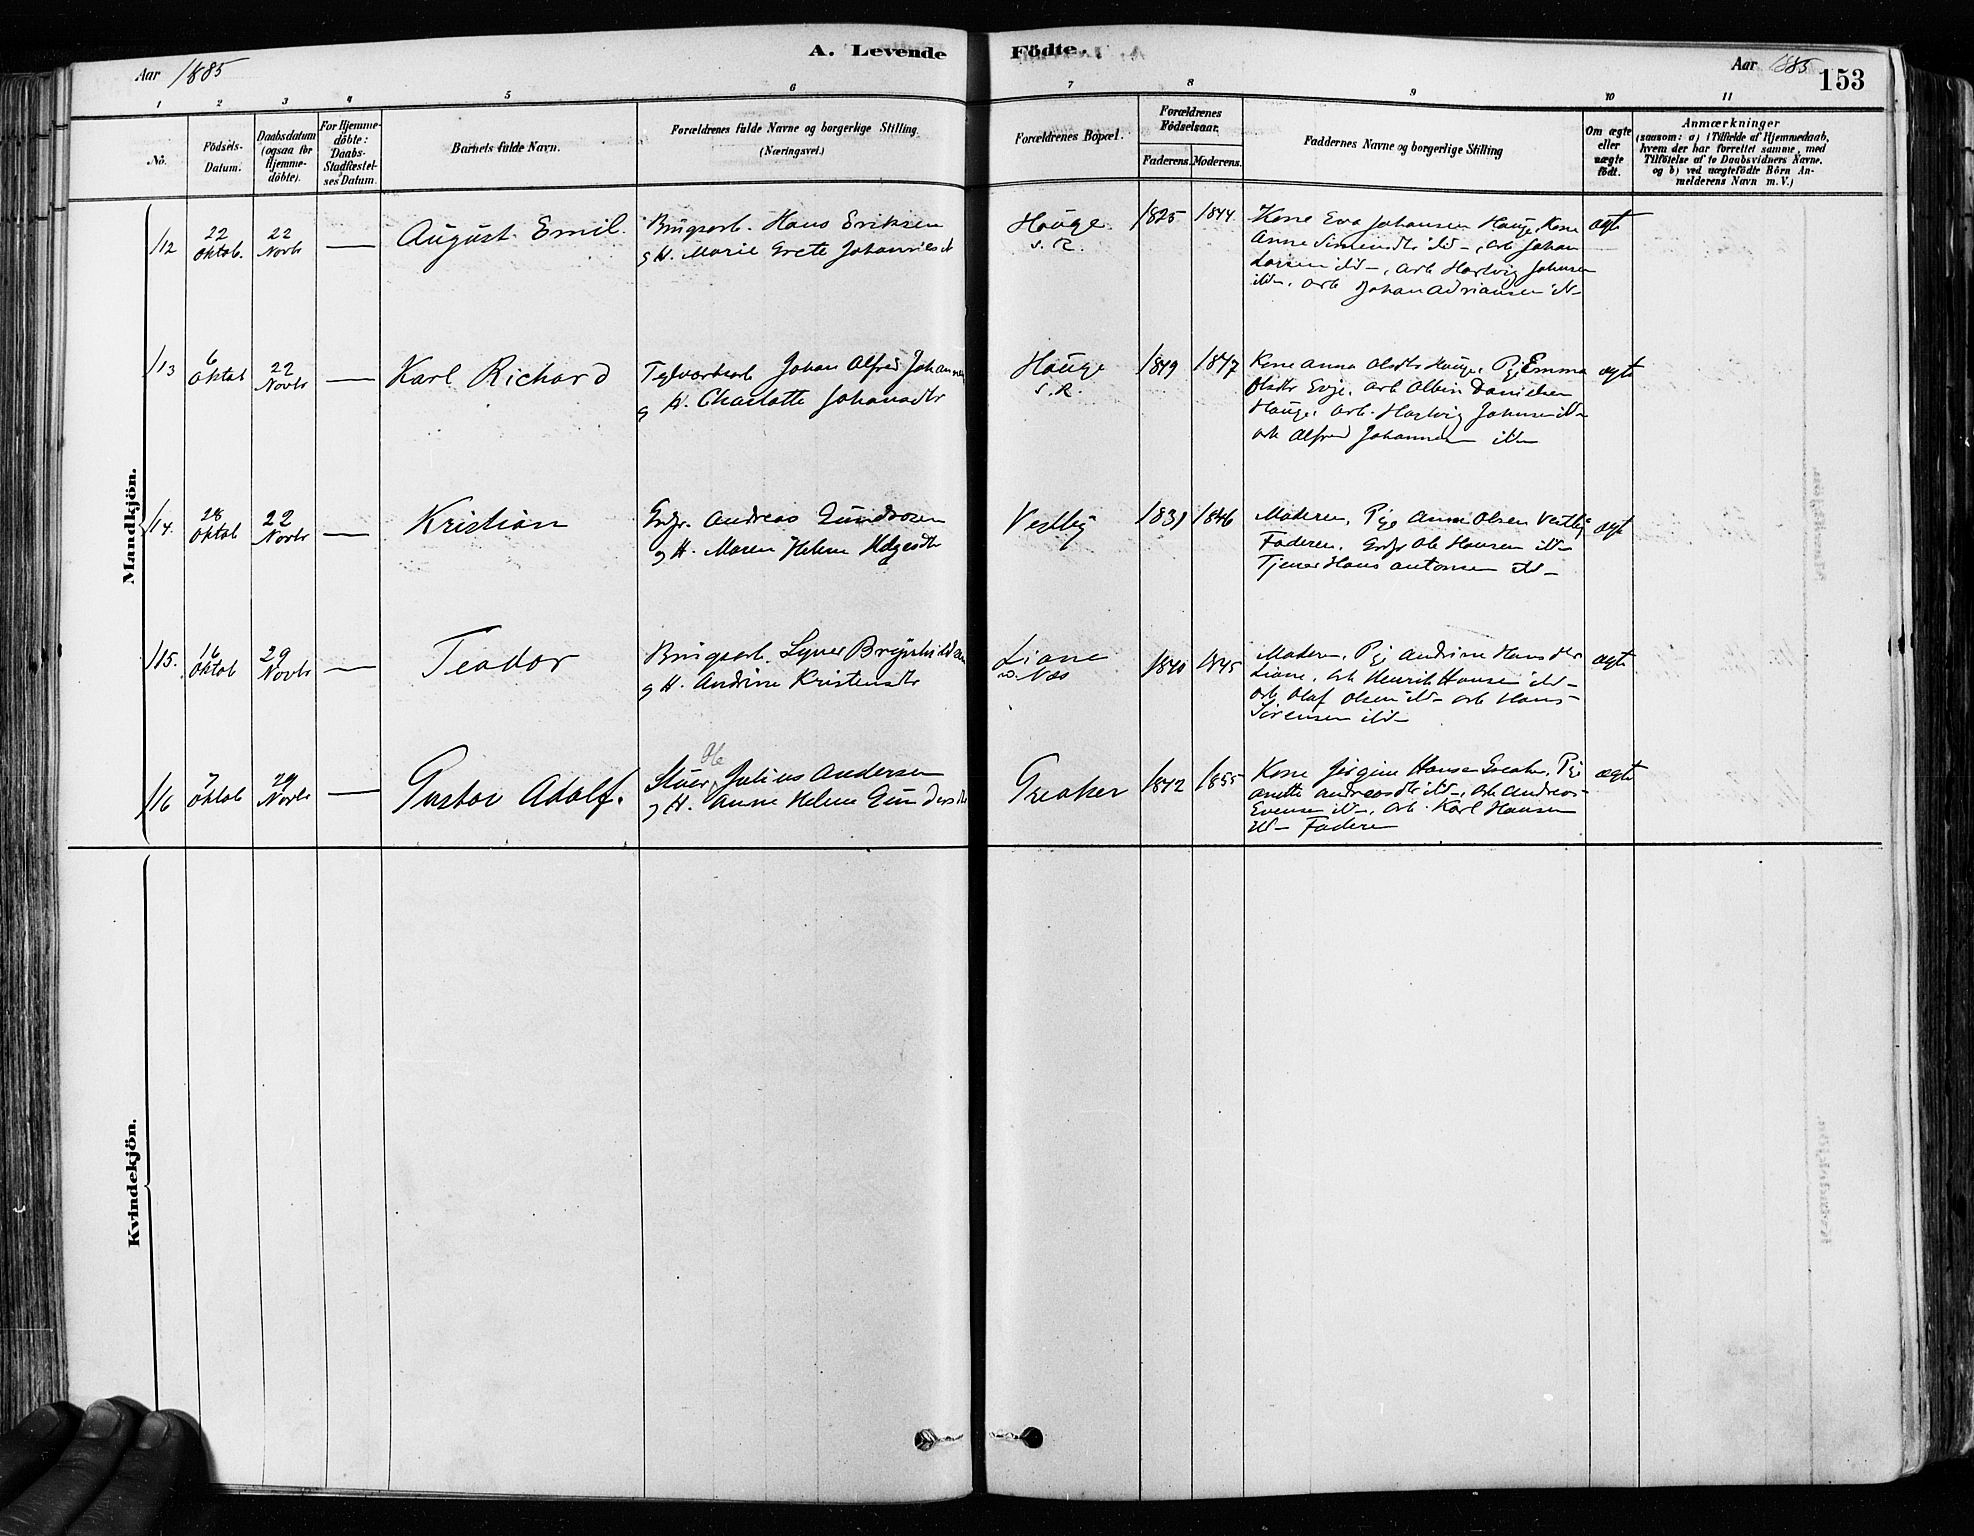 A. Levende
Födte.
Aar 1885
Aar 1885
153
1 2 3 4 5 6 7 8 9 10 11
No.
Födsels-
Datum.
Daabsdatum
(ogsaa for
Hjemme-
döbte).
For Hjemme-
döbte:
Daabs-
Stadfæstel-
ses Datum.
Barnets fulde Navn.
Forældrenes fulde Navne og borgerlige Stilling.
(Næringsvei.)
Forældrenes Bopæl.
Forældrenes
Födselsaar.
Faderens. Moderens.
Faddernes Navne og borgerlige Stilling
Om ægte
eller
uægte
födt.
Anmærkninger
(saasom: a) i Tilfælde af Hjemmedaab,
hvem der har forrettet samme, med
Tilföielse af to Daabsvidners Navne.
og b) ved uægtefödte Börn An-
melderens Navn m. V.)
Mandkjön.
112
22
Oktob.
22
Novbr
—
August Emil.
Brugsarb. Hans Eriksen
g H. Marie Grete Johannesdt
Hauge
s. R.
1825 1844
Kone Eva Johansen Hauge, Kone
Anne Simensdtr ibd –, arb Johan
Larsen ibd –, arb Hartvig Johnsen
ibd –, arb Johan Adriansen ibd–
ægte
113
6
Oktob
22
Novbr
—
Karl Richard
Teglværksarb Johan Alfred Johannesen
g H. Charlotte Johansdtr
Hauge
s. R.
1849 1847
Kone Anna Olsdtr Hauge, Pige Emma
Olsdtr Evje, arb Albin Danielsen
Hauge, arb. Hartvig Johnsen ibd–
arb Alfred Johannesen ibd–
ægte
114.
28
Oktob
22
Novbr
—
Kristian
Grdr. Andreas Gundersen
g H. Maren Helene Helgesdtr
Vestby
1846
Moderen, Pige Anne Olsen Vestby
Faderen, Grdr Ole Hansen ibd–
Tjener Hans Antonsen ibd–
ægte
115.
16
Oktob
29
Novbr
—
Teodor
Brugsarb. Syver Brynhildsen
g H. Andrine Kristensdtr
Liane
Næs
1840 1845
Moderen, Pige Andrine Hansdtr
Liane, arb Henrik Hansen ibd–
arb Olaf Olsen ibd– arb Hans
Sörensen ibd–
ægte
116
7
Oktob
29
Novbr
—
Gustav Adolf.
Ole
Stuer, Julius Andersen
g H. Anne Helene Gundersdtr
Greaker
1842 1855
Kone Jörgine Hansen Greaker, Pige
Anette Andreasdtr ibd–, arb Andreas
Evensen ibd–, arb. Karl Hansen
ibd– Faderen
ægte
Kvindekjön.